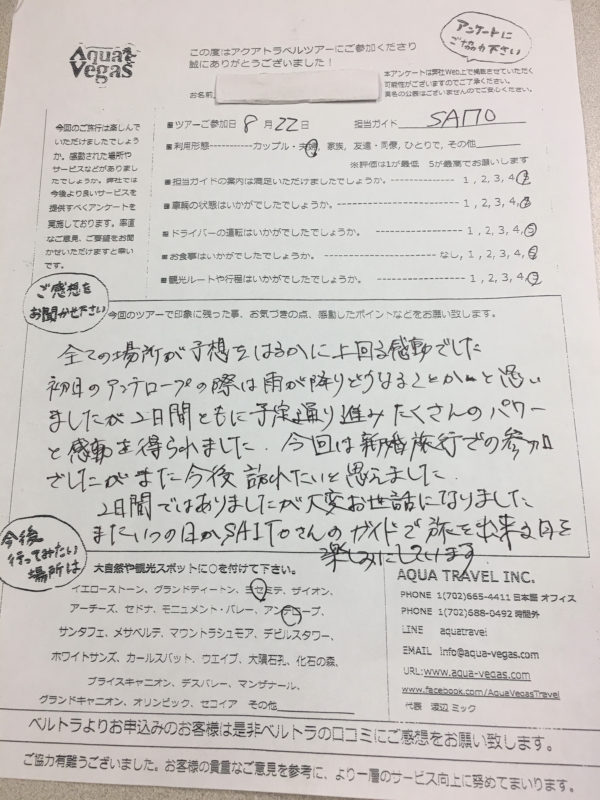 Aqua Vegas
この度はアクアトラベルツアーにご参加くださり
誠にありがとうございました！
アンケートに
ご協力下さい
お名前
本アンケートは弊社Web上で掲載させていただく
可能性がございますのでご了承ください。
実名の公表はございませんのでご安心ください。
今回のご旅行は楽しんで
いただけましたでしょう
か。感動された場所や
サービスなどがありまし
たでしょうか。弊社では
今後より良いサービスを
提供すべくアンケートを
実施しております。率直
なご意見、ご要望をお聞
かせいただけますと幸い
です。
■ツアーご参加日 8 月 22 日 担当ガイド SAITO
■利用形態-----------カップル・夫婦、家族、友達・同僚、ひとりで、その他
※評価は1が最低 5が最高でお願いします
■担当ガイドの案内は満足いただけましたでしょうか。 ------------ 1, 2, 3, 4, 5
■車輌の状態はいかがでしたでしょうか。 ------------ 1, 2, 3, 4, 5
■ドライバーの運転はいかがでしたでしょうか。 ------------ 1, 2, 3, 4, 5
■お食事はいかがでしたでしょうか。 ------------ なし, 1, 2, 3, 4, 5
■観光ルートや行程はいかがでしたでしょうか。 ------------ 1, 2, 3, 4, 5
ご感想を
お聞かせください
今回のツアーで印象に残った事、お気づきの点、感動したポイントなどをお願い致します。
全ての場所が予想をはるかに上回る感動でした
初日のアンテロープの際は雨が降りどうなることかと思い
ましたが2日間ともに予定通り進みたくさんのパワー
と感動を得られました. 今回は新婚旅行での参加
でしたがまた今後訪れたいと思えました.
2日間ではありましたが大変お世話になりました
またいつの日かSAITOさんのガイドで旅を出来る日を
楽しみにしています
今後
行ってみたい
場所は
大自然や観光スポットに○を付けて下さい。
イエローストーン、グランドティートン、ヨセミテ、ザイオン、
アーチーズ、セドナ、モニュメント・バレー、アンテロープ、
サンタフェ、メサベルテ、マウントラシュモア、デビルスタワー、
ホワイトサンズ、カールスバット、ウエイブ、大隕石孔、化石の森、
ブライスキャニオン、デスバレー、マンザナール、
グランドキャニオン、オリンピック、セコイア その他
AQUA TRAVEL INC.
PHONE 1(702)665-4411 日本語 オフィス
PHONE 1(702)688-0492 時間外
LINE aquatravel
EMAIL info@aqua-vegas.com
URL:www.aqua-vegas.com
www.facebook.com/AquaVegasTravel
代表 渡辺 ミック
ベルトラよりお申込みのお客様は是非ベルトラの口コミにご感想をお願い致します。
ご協力有難うございました。お客様の貴重なご意見を参考に、より一層のサービス向上に努めてまいります。